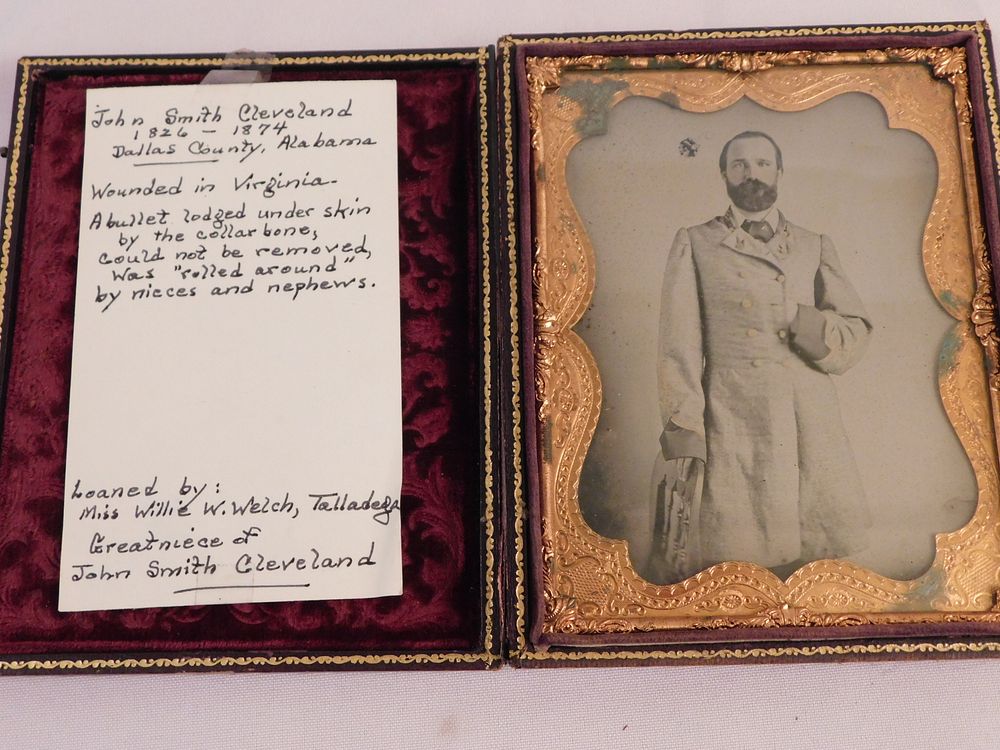 John Smith Cleveland
1826 - 1874
Dallas County, Alabama
Wounded in Virginia-
A bullet lodged under skin
by the collar bone,
could not be removed,
was "rolled around"
by nieces and nephews.
Loaned by:
Miss Willie W. Welch, Talladega
Greatniece of
John Smith Cleveland